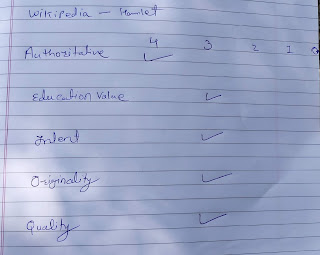 Wikipedia — Hamlet
4 3 2 1
Authoritative ✓
Education Value ✓
Intent ✓
Originality ✓
Quality ✓